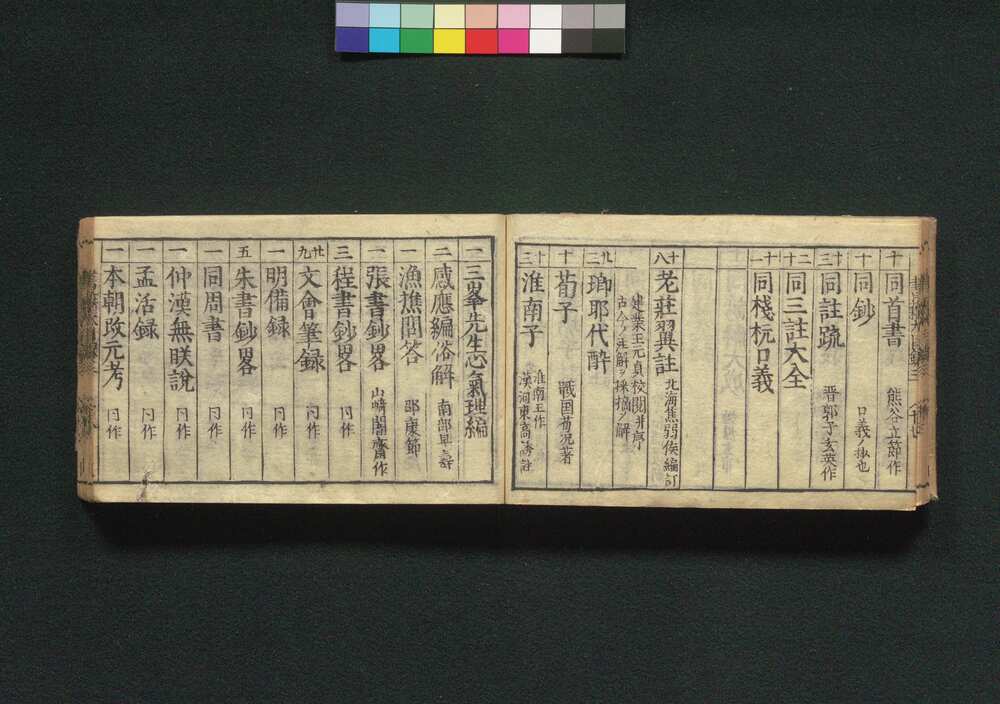 十 同首書 熊谷立節作
十 同鈔 口義ノ抄也
十三 同註疏 晋郭子玄英作
十二 同三註大全
十一 同棧杭口義
十八 老莊翼註 北海焦弱侯編訂
建業王元貞校閲并序
古今ノ註解ヲ採摘ノ解
廿二 瑯耶代醉
十 荀子 戰国荀況著
十三 淮南子 淮南王作
漢河東高誘註
一 三峯先生心氣理編
二 感應編俗解 南部艸壽
一 漁樵問答 邵康節
一 張書鈔畧 山﨑闇齋作
三 程書鈔畧 同作
廿九 文會筆録 同作
一 明備録 同作
五 朱書鈔畧 同作
一 同周書 同作
一 仲漢無朕說 同作
一 孟活録 同作
一 本朝改元考 同作